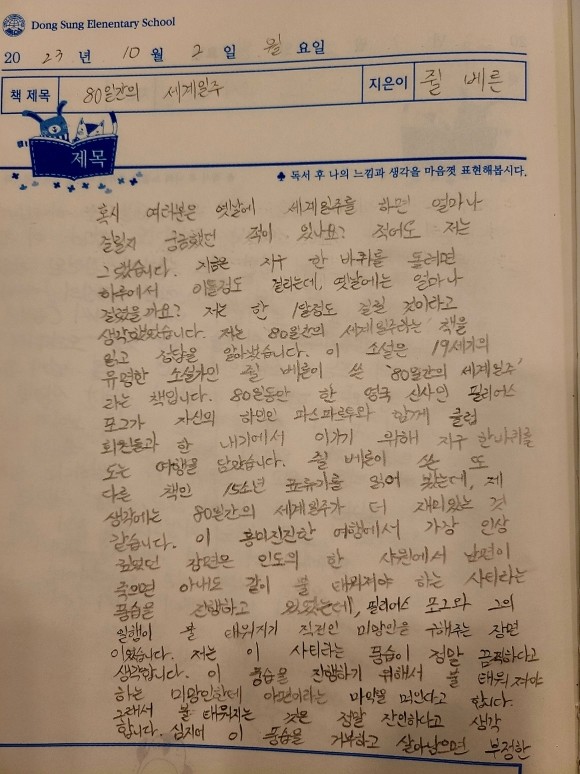 Dong Sung Elenentary School
20 23 년 10 월 2 일 월 요일
책 제목 80일간의 세계일주 지은이 쥘 베른
제목
♠ 독서 후 나의 느낌과 생각을 마음껏 표현해봅시다.
혹시 여러분은 옛날에 세계일주를 하면 얼마나
걸릴지 궁금했던 적이 있나요? 적어도 저는
그랬습니다. 지금은 지구 한 바퀴를 돌려면
하루에서 이틀정도 걸리는데, 옛날에는 얼마나
걸렸을까요? 저는 한 1달정도 걸릴 것이라고
생각했었습니다. 저는 '80일간의 세계일주'라는 책을
읽고 정답을 알아냈습니다. 이 소설은 19세기의
유명한 소설가인 쥘 베른이 쓴 '80일간의 세계일주'
라는 책입니다. 80일동안 한 영국 신사인 필리어스
포그가 자신의 하인인 파스파르투와 함께 클럽
회원들과 한 내기에서 이기기 위해 지구 한바퀴를
도는 여행을 담았습니다. 쥘 베른이 쓴 또
다른 책인 15소년 표류기를 읽어 봤는데, 제
생각에는 80일간의 세계일주가 더 재미있는 것
같습니다. 이 흥미진진한 여행에서 가장 인상
깊었던 장면은 인도의 한 사원에서 남편이
죽으면 아내도 같이 불 태워져야 하는 사티라는
풍습을 진행하고 있었는데, 필리어스 포그와 그의
일행이 불 태워지기 직전인 미망인을 구해주는 장면
이었습니다. 저는 이 사티라는 풍습이 정말 끔찍하다고
생각합니다. 이 풍습을 진행하기 위해서 불 태워져야
하는 미망인한테 아편이라는 마약을 먹인다고 합니다.
그래서 불 태워지는 것은 정말 잔인하다고 생각
합니다. 심지어 이 풍습을 거부하고 살아남으면 부정한